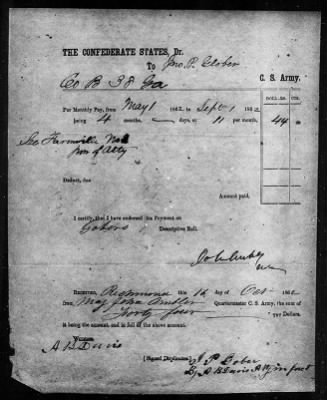 THE CONFEDERATE STATES, Dr.
To Jno. P. Gober
Co B 38 Ga
C. S. Army.
DOLLARS. CTS.
For Monthly Pay, from May 1 1862 to Sept 1 1862
being 4 months, days, at 11 per month, 44
See Farmville No
Pow of Atty
Deduct, due
Amount paid,
I certify, that I have endorsed this Payment on
Gobers Descriptive Roll.
Received, Richmond this 16 day of Oct 1862
from Maj John Ambler Quartermaster C. S. Army, the sum of
Forty four Dollars.
it being the amount, and in full of the above account.
Witness
A B Davis
[Signed Duplicates.]
J P Gober
By A B Davis Atty in fact